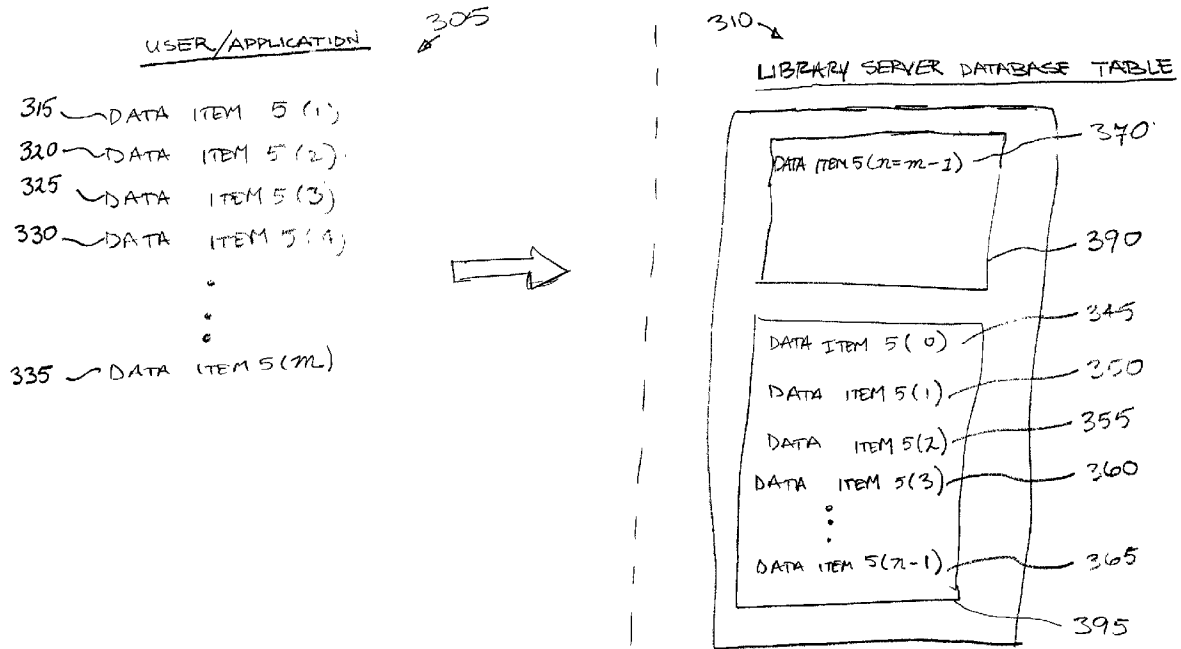 USER/APPLICATION 305
315 DATA ITEM 5 (1)
320 DATA ITEM 5 (2)
325 DATA ITEM 5 (3)
330 DATA ITEM 5 (4)
335 DATA ITEM 5 (m)
310
LIBRARY SERVER DATABASE TABLE
DATA ITEM 5 (n=m-1) 370
390
DATA ITEM 5 (0) 345
DATA ITEM 5 (1) 350
DATA ITEM 5 (2) 355
DATA ITEM 5 (3) 360
DATA ITEM 5 (n-1) 365
395